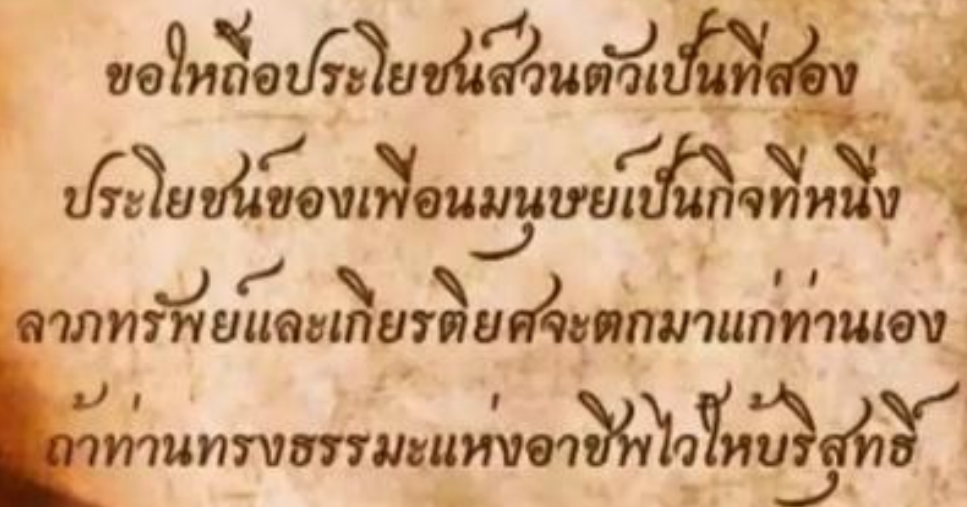 ขอให้ถือประโยชน์ส่วนตัวเป็นที่สอง
ประโยชน์ของเพื่อนมนุษย์เป็นกิจที่หนึ่ง
ลาภทรัพย์และเกียรติยศจะตกมาแก่ท่านเอง
ถ้าท่านทรงธรรมะแห่งอาชีพไว้ให้บริสุทธิ์